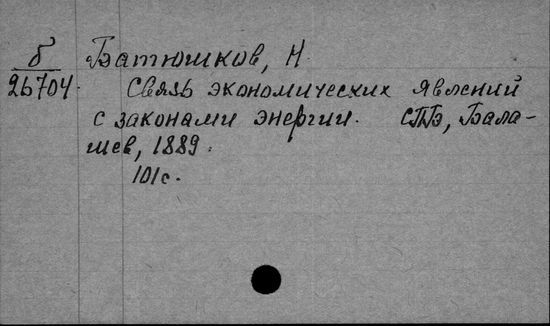 б Батюшков, Н.
26704. Связь экономических явлений
с законами энергии. СПБ, Бала-
шев, 1889.
101 с.